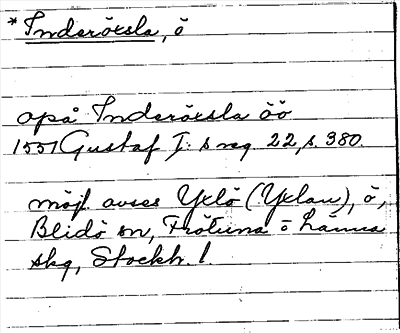 *Inderöxsla, ö
opå Inderöxsla öö
1551 Gustaf I:s reg. 22, s. 380.
möjl. avses Yxlö (Yxlan), ö,
Blidö sn, Frötuna o Länna
skg, Stockh. l.